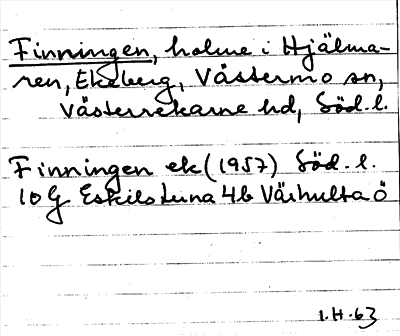 Finningen, holme i Hjälma-
ren, Ekeberg, Västermo sn,
Västerrekarne hd, Söd. l.
Finningen ek (1957) Söd. l.
10 G Eskilstuna 4b Väihulta ö
1.H.63